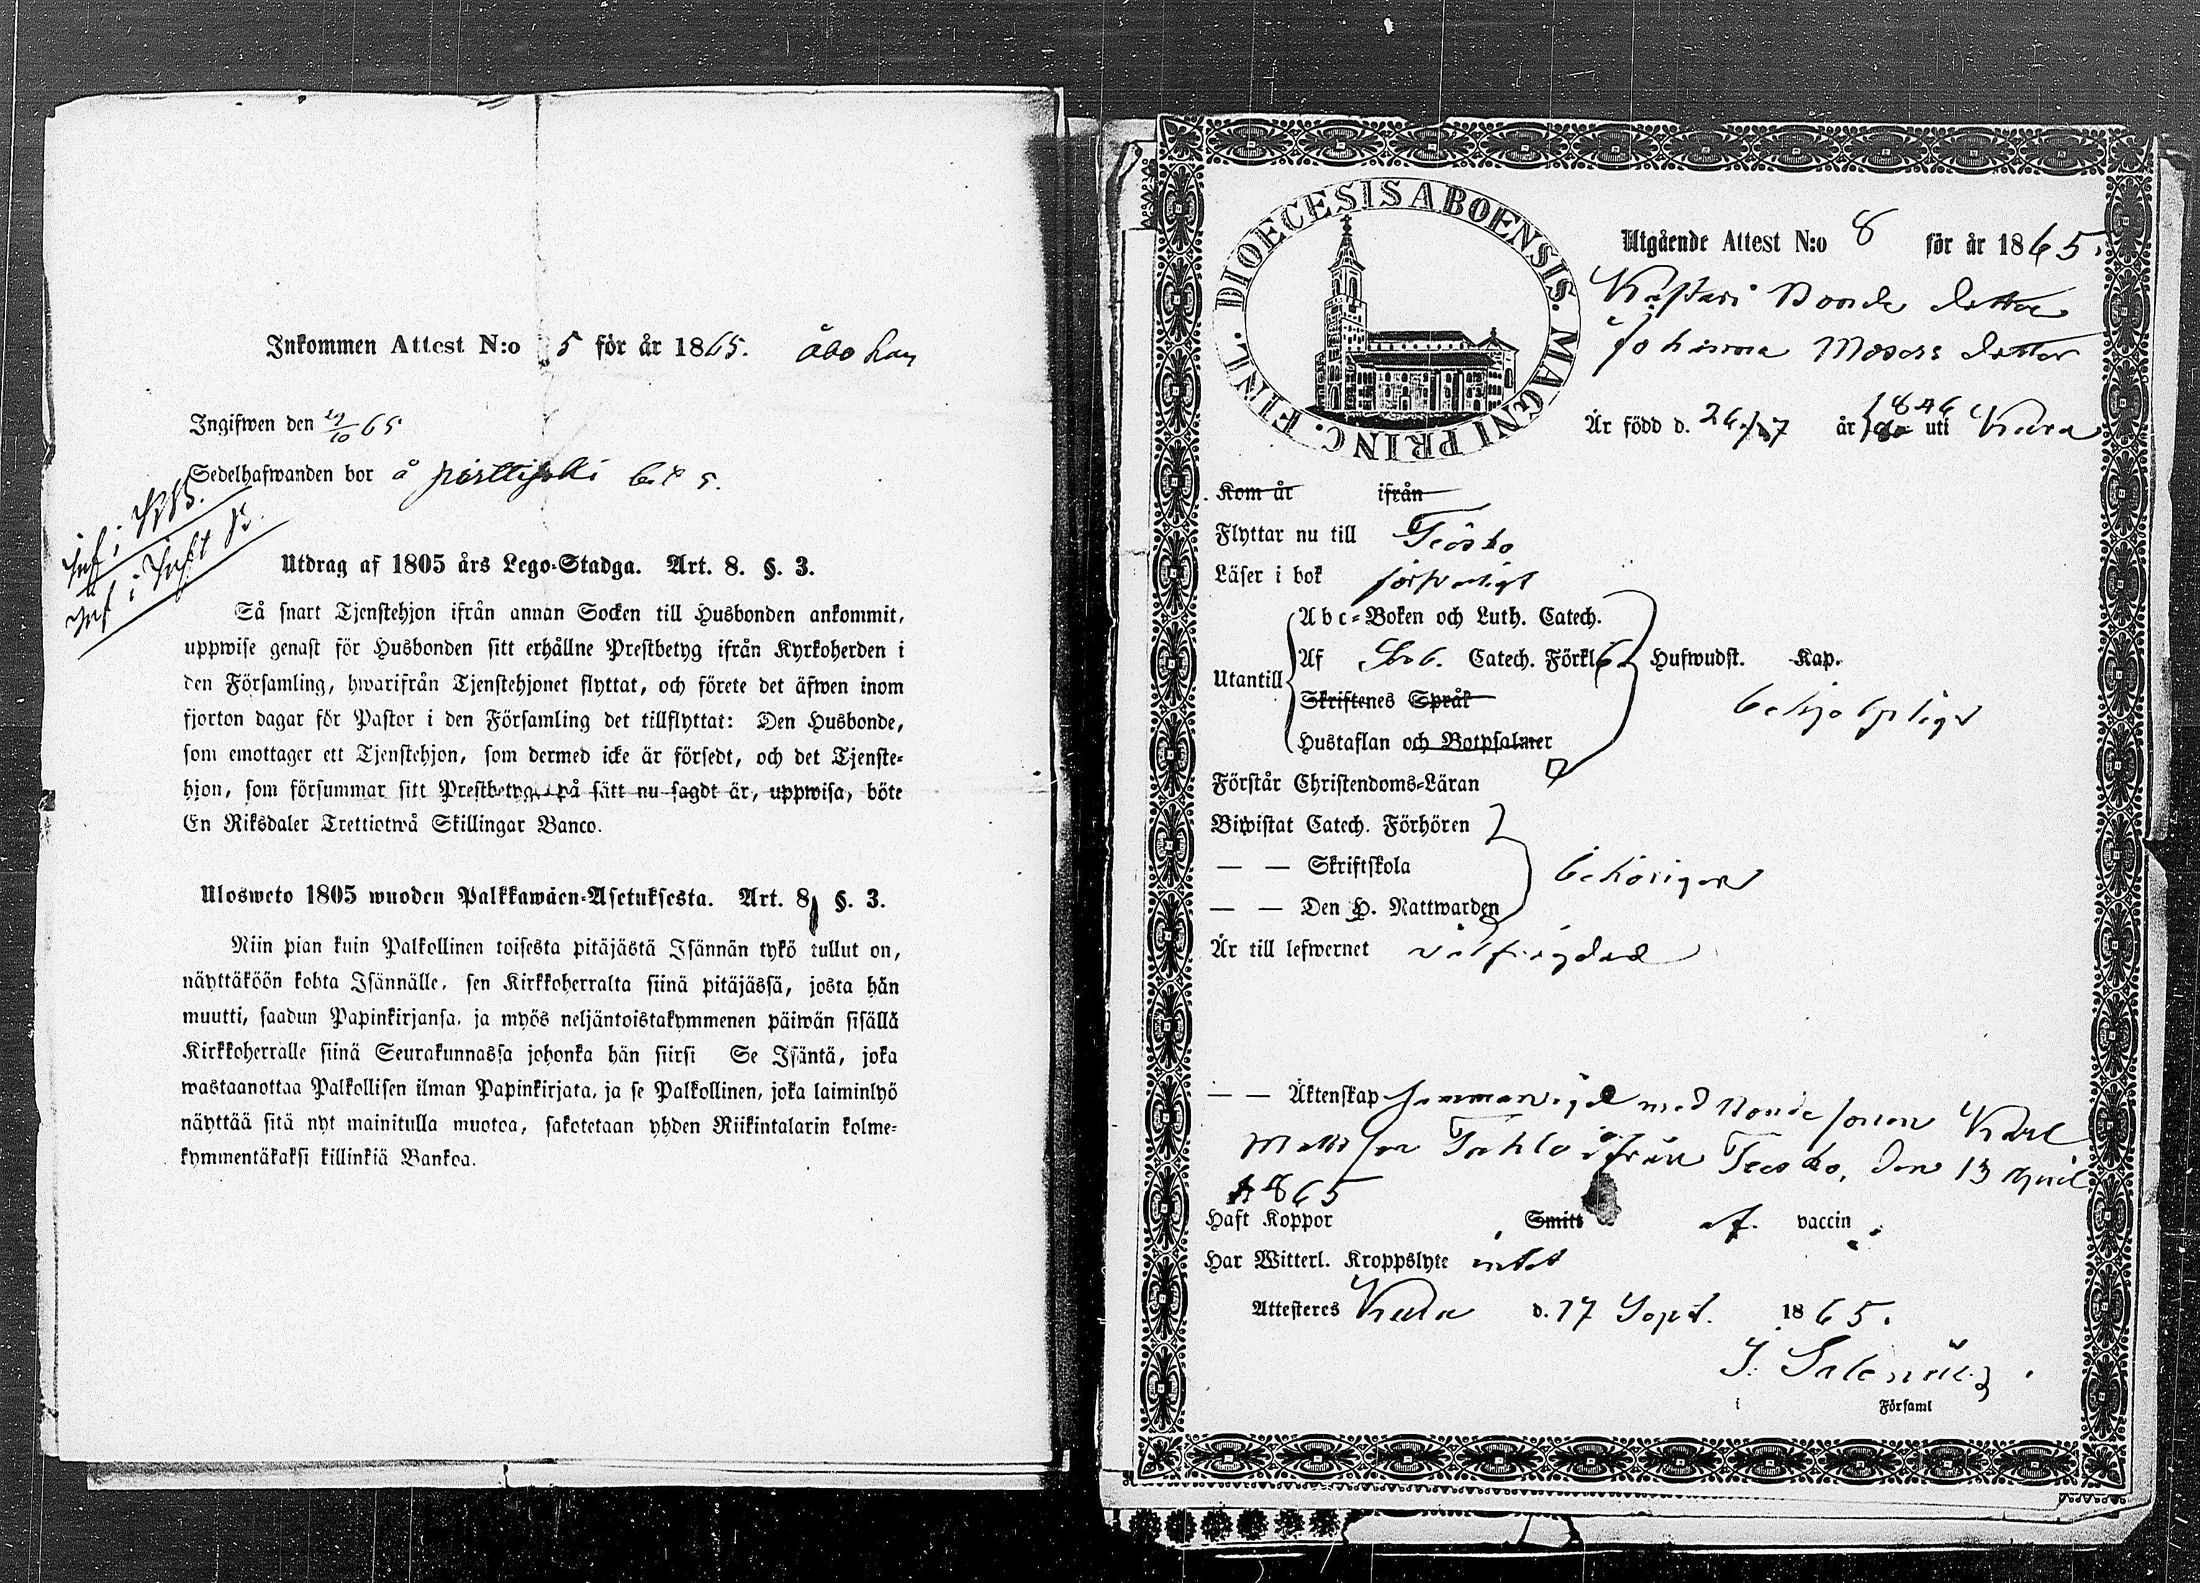 Inkommen Attest N:o 5 för år 1865. Åbo
Ingifwen den 65
Sedelhafwanden bor å
Utdrag af 1805 års Lego-Stadga. Art. 8. §. 3.
Så snart Tjenstehjon ifrån annan Socken till Husbonden ankommit,
uppwise genast för Husbonden sitt erhållne Prestbetyg ifrån Kyrkoherden i
den Församling, hwarifrån Tjenstehjonet flyttat, och förete det äfwen inom
fjorton dagar för Pastor i den Församling det tillflyttat: Den Husbonde,
som emottager ett Tjenstehjon, som dermed icke är försedt, och det Tjenste-
hjon, som försummar sitt Prestbetyg, på sätt nu sagdt är, uppwisa, böte
En Riksdaler Trettiotwå Skillingar Banco.
Ulosweto 1805 wuoden Palkkawäen-Asetuksesta. Art. 8. §. 3.
Niin pian kuin Palkollinen toisesta pitäjästä Isännän tykö tullut on,
näyttäköön kohta Isännälle, sen Kirkkoherralta siinä pitäjässä, josta hän
muutti, saadun Papinkirjansa, ja myös neljäntoistakymmenen päiwän sisällä
Kirkkoherralle siinä Seurakunnassa johonka hän siirsi Se Isäntä, joka
wastaanottaa Palkollisen ilman Papinkirjata, ja se Palkollinen, joka laiminlyö
näyttää sitä nyt mainitulla muotoa, sakotetaan yhden Riikintalarin kolme-
kymmentäkaksi killinkiä Bankoa.
DIOECESIS ABOENSIS. MAGNI PRINC. FINL.
Utgående Attest N:o 8 för år 1865.
Bonde dotter
Johanna Mosers dotter
Är född d. år 1846 uti
Kom år ifrån
Flyttar nu till Teisko
Läser i bok försvarligt
Abc-Boken och Luth. Catech.
Utantill Af Catech. Förkl. Hufwudst. Kap.
Skriftenes Språk
Hustaflan och Botpsalmer
Förstår Christendoms-Läran
Biwistat Catech. Förhören
— — Skriftskola behörigen
— — Den H. Nattwarden
Är till lefwernet välfrägdad
— — Äktenskap sammanvigd med Bonde sonen Karl
ifrån Teisko, den 13 April
1865
Haft Koppor Smitt af vaccin
Har Witterl. Kroppslyte intet
Attesteres d. 17 Sept. 1865.
i Församl